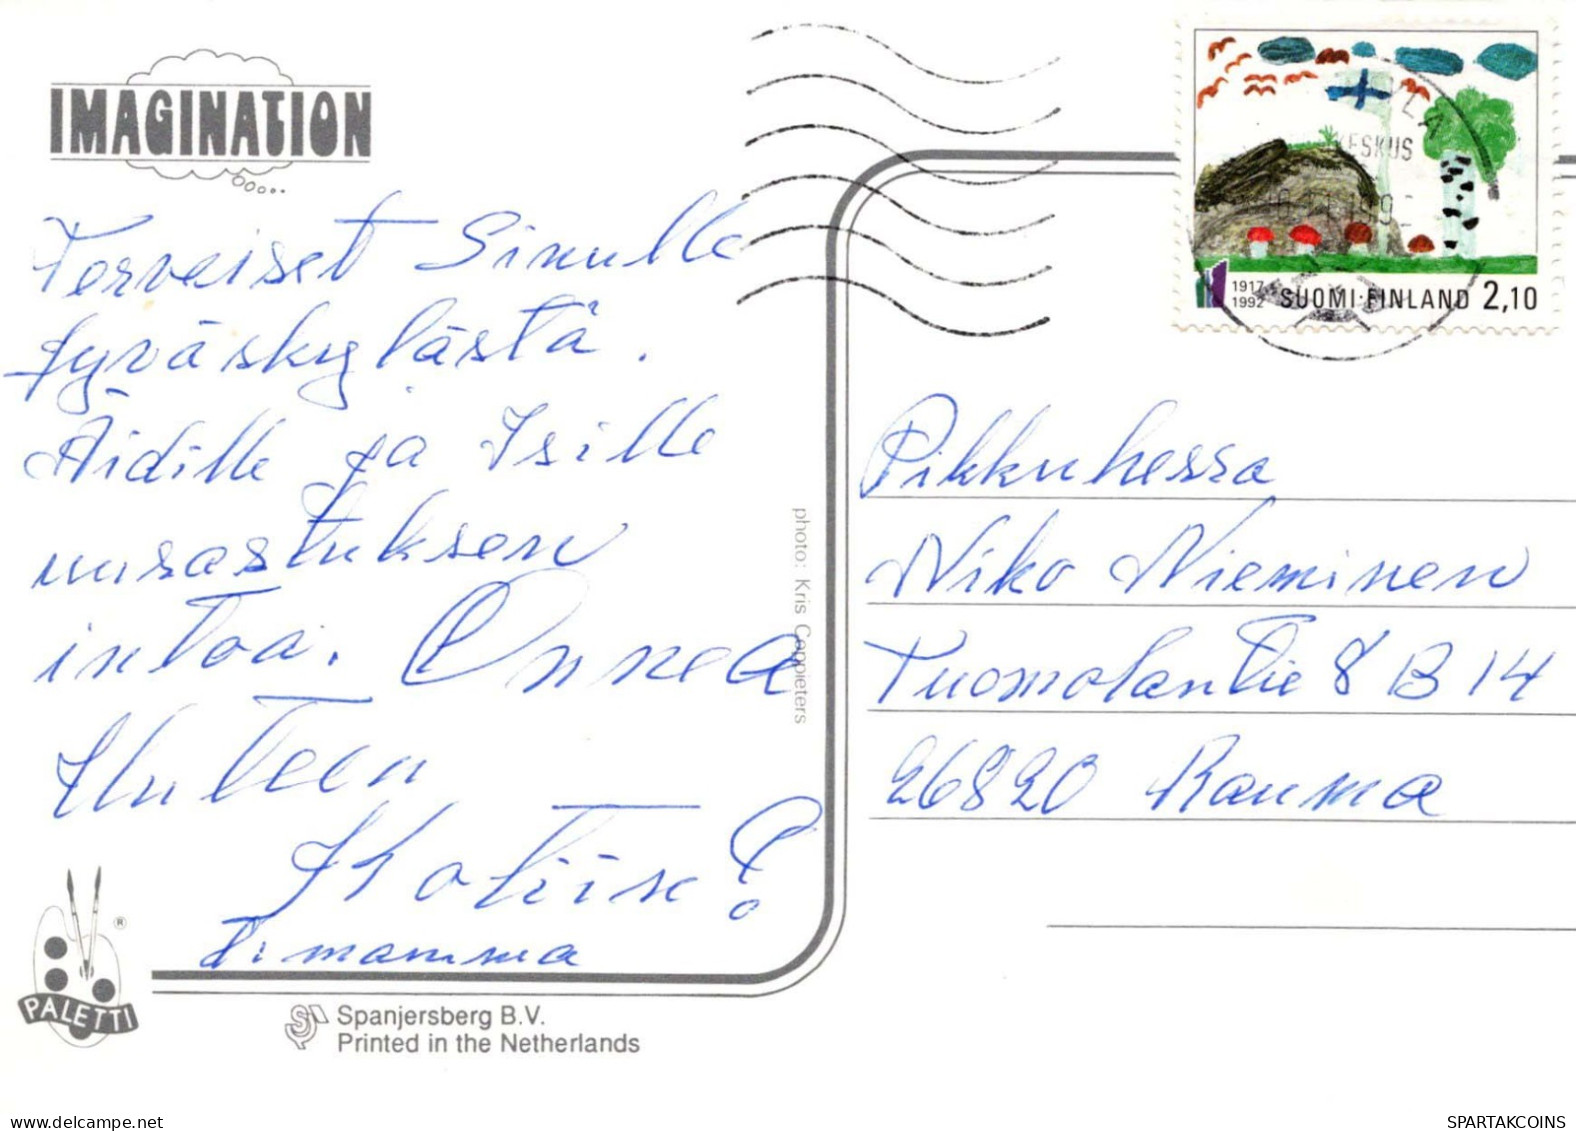 IMAGINATION
Terveiset Sinulle
Jyväskylästä.
Äidille ja Isille
muistuksen
intoa. Onnea
Uuteen
Kotiin!
T: mamma
PALETTI
®
Spanjersberg B.V.
Printed in the Netherlands
photo: Kris Coppieters
KESKUS
1917
1992
SUOMI·FINLAND 2,10
Pikkuhessa
Niko Nieminen
Tuomolantie 8 B 14
26820 Rauma
delcampe.net
SPARTAKCOINS